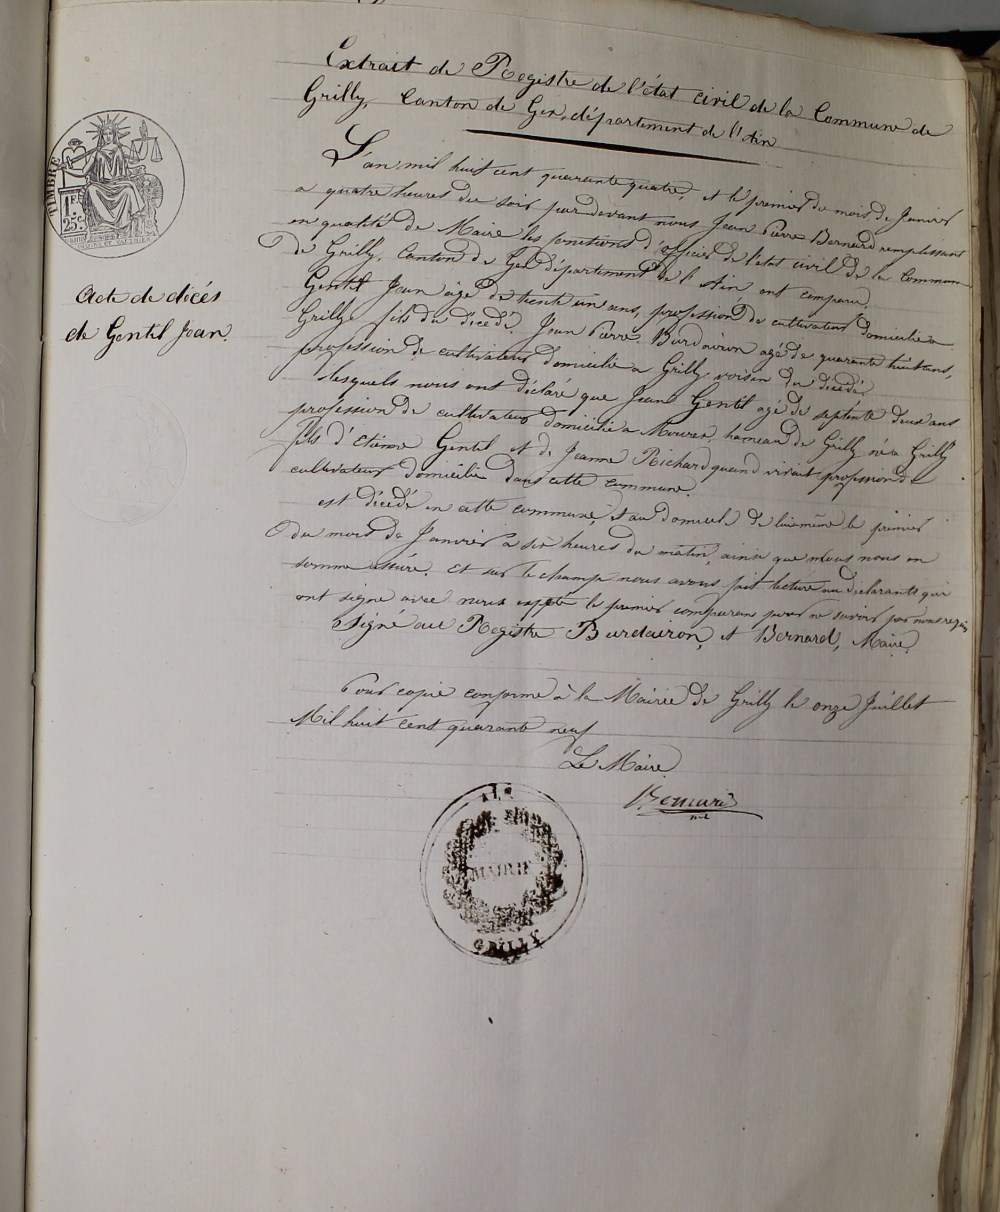 Extrait de Registre de l'état civil de la Commune de
Grilly, Canton de Gex, département de l'Ain
TIMBRE
1 FR
25 C
Acte de décés
de Gentil Jean.
L'an mil huit cent quarante quatre, et le premier du mois de Janvier
a quatre heures du soir par devant nous Jean Pierre Bernard remplissant
en qualité de Maire les fonctions d'officier de l'état civil de la Commune
De Grilly, Canton de Gex département de l'Ain ont comparu,
Gentil Jean âgé de trente un ans, profession de cultivateur domicilié a
Grilly fils du décédé, Jean Pierre Burdairon agé de quarante huit ans,
profession de cultivateur domicilié a Grilly voisin du décédé,
lesquels nous ont déclaré que Jean Gentil agé de septente deux ans
profession de cultivateur domicilié a Mourex, hameau de Grilly né a Grilly
fils d'Etienne Gentil et de Jeanne Richard quand vivait profession de
cultivateur domicilié dans cette commune.
est décédé en cette commune, et au domicile de lui même le premier
du mois de Janvier a six heures du matin, ainsi que nous nous en
somme assuré. Et sur le champ nous avons fait lecture au déclarants qui
ont signé avec nous excepté le premier comparant pour ne savoir par nous requis
Signé au Registre Burdairon, et Bernard, Maire.
Pour copie conforme à la Mairie de Grilly le onze Juillet
Mil huit cent quarante neuf
Le Maire
Bernard
MAIRIE
GRILLY